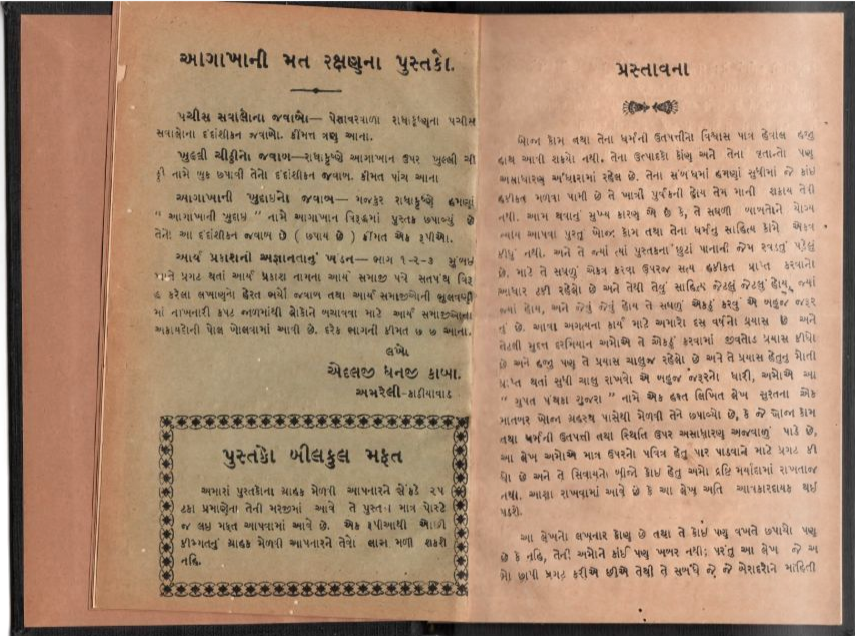 આગાખાની મત રક્ષણુના પુસ્તકો.
પચીસ સવાલોના જવાબો— પેશાવરવાળા રાધાકૃષ્ણના પચીસ
સવાલોના દંદાંશીકન જવાબો. કીંમત ત્રણ આના.
ખુલ્લી ચીઠ્ઠીનો જવાબ—રાધાકૃષ્ણે આગાખાન ઉપર ખુલ્લી ચી
ઠ્ઠી નામે બુક છપાવી તેનો દંદાંશીકન જવાબ. કીંમત પાંચ આના
આગાખાની ખુદાઇનો જવાબ— મજકુર રાધાકૃષ્ણે હમણાં
" આગાખાની ખુદાઇ " નામે આગાખાન વિરૂદ્ધમાં પુસ્તક છપાવ્યું છે
તેનો આ દંદાંશીકન જવાબ છે ( છપાય છે ) કીંમત એક રૂપીઓ.
આર્ય પ્રકાશની અજ્ઞાનતાનું ખંડન— ભાગ ૧-૨-૩ મુંબઇ
ખાતે પ્રગટ થતાં આર્ય પ્રકાશ નામના આર્ય સમાજી પત્રે સતપંથ વિરૂ
દ્ધ કરેલા લખાણનો હેરત ભર્યો જવાબ તથા આર્ય સમાજીઓની ભુલવણી
માં નાખનારી કપટ જાળમાંથી લોકોને બચાવવા માટે આર્ય સમાજીઓના
અકાયદોની પોલ ખોલવામાં આવી છે. દરેક ભાગની કીંમત ૭ ૭ આના.
લખો
એદલજી ધનજી કાબા.
અમરેલી-કાઠીયાવાડ
પુસ્તકો બીલકુલ મફત
અમારાં પુસ્તકોના ગ્રાહક મેળવી આપનારને સેંકડે ૨૫
ટકા પ્રમાણેના તેની મરજીમાં આવે તે પુસ્તકો માત્ર પોસ્ટે
જ લઇ મફત આપવામાં આવે છે. એક રૂપીઆથી ઓછી
કીંમ્મતનું ગ્રાહક મેળવી આપનારને તેવો લાભ મળી શકશે
નહિ.
પ્રસ્તાવના
ખોજા કોમ તથા તેના ધર્મની ઉત્પત્તીનો વિશ્વાસ પાત્ર હેવાલ હજુ
હાથ આવી શક્યો નથી. તેના ઉત્પાદકો કોણ અને તેના વૃતાન્તો પણ
અસાધારણ અંધારામાં રહેલ છે. તેના સંબંધમાં હમણાં સુધીમાં જે કાંઇ
હકીકત મળવા પામી છે તે ખાત્રી પુર્વકની હોય તેમ માની શકાય તેવી
નથી. આમ થવાનું મુખ્ય કારણ એ છે કે, તે સઘળી બાબતોને યોગ્ય
ન્યાય આપવા પુરતું ખોજા કોમ તથા તેના ધર્મનું સાહિત્ય કોમે એકત્ર
કીધું નથી. અને તે જ્યાં ત્યાં પુસ્તકના છુટાં પાનાની જેમ રવડતું પડેલું
છે. માટે તે સઘળું એકત્ર કરવા ઉપરજ સત્ય હકીકત પ્રાપ્ત કરવાનો
આધાર ટકી રહેલો છે અને તેથી તેવું સાહિત્ય જેટલું જેટલું હોય, જ્યાં
જ્યાં હોય, અને જેવું જેવું હોય તે સઘળું એકઠું કરવું એ બહુજ જરૂર
નું છે. આવા અગત્યના કાર્ય માટે અમારો દસ વર્ષનો પ્રયાસ છે અને
તેટલી મુદત દરમિયાન અમોએ તે એકઠું કરવામાં જીવતોડ પ્રયાસ કીધો
છે અને હજુ પણ તે પ્રયાસ ચાલુજ રહેલો છે અને તે પ્રયાસ હેતુનુ મોતી
પ્રાપ્ત થતાં સુધી ચાલુ રાખવો એ બહુજ જરૂરનો ધારી, અમોએ આ
" ગુપત પંથકા ગુજરા " નામે એક હસ્ત લિખિત લેખ સુરતના એક
માતબર ખોજા ગ્રહસ્થ પાસેથી મેળવી તેને છપાવ્યો છે, કે જે ખોજા કોમ
તથા ધર્મની ઉત્પત્તી તથા સ્થિતિ ઉપર અસાધારણ અજવાળું પાડે છે,
આ લેખ અમોએ માત્ર ઉપરનો પવિત્ર હેતુ પાર પાડવાને માટે પ્રગટ કી
ધો છે અને તે સિવાયનો બીજો કોઇ હેતુ અમો દ્રષ્ટિ મર્યાદામાં રાખતાજ
નથી. આશા રાખવામાં આવે છે કે આ લેખ અતિ આવકારદાયક થઇ
પડશે.
આ લેખનો લખનાર કોણ છે તથા તે કોઇ પણ વખતે છપાયો પણ
છે કે નહિ, તેની અમોને કાંઇ પણ ખબર નથી; પરંતુ આ લેખ જે અ
મો છાપી પ્રગટ કરીએ છીએ તેથી તે સંબંધે જે જે બેરાદરોને માહિતી